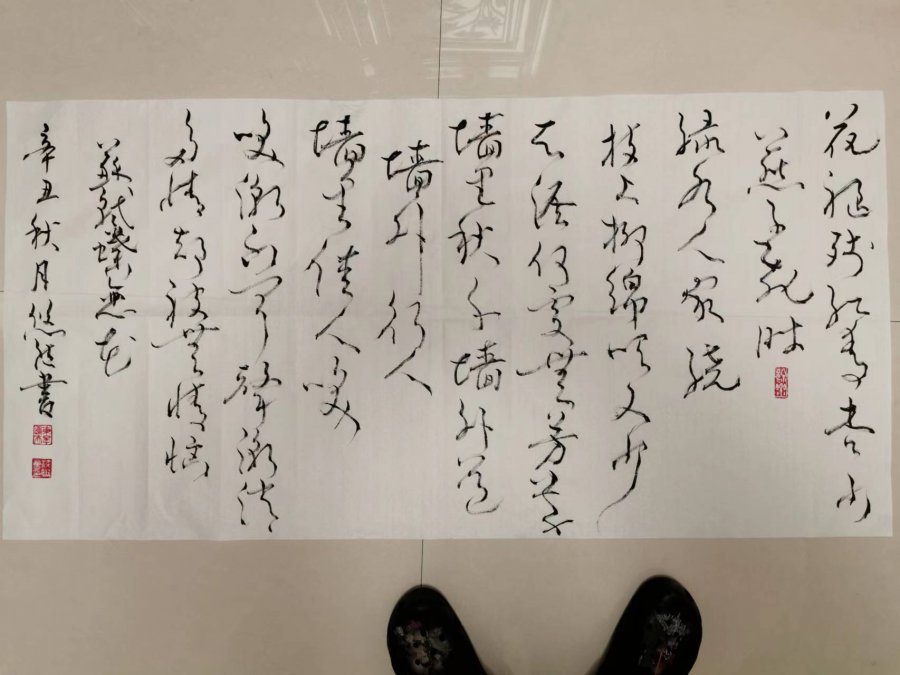 花褪残红青杏小
燕子飞时
绿水人家绕
枝上柳绵吹又少
天涯何处無芳草
墙里秋千墙外道
墙外行人
墙里佳人笑
笑渐不闻声渐悄
多情却被無情恼
苏轼蝶恋花
辛丑秋月悠然書